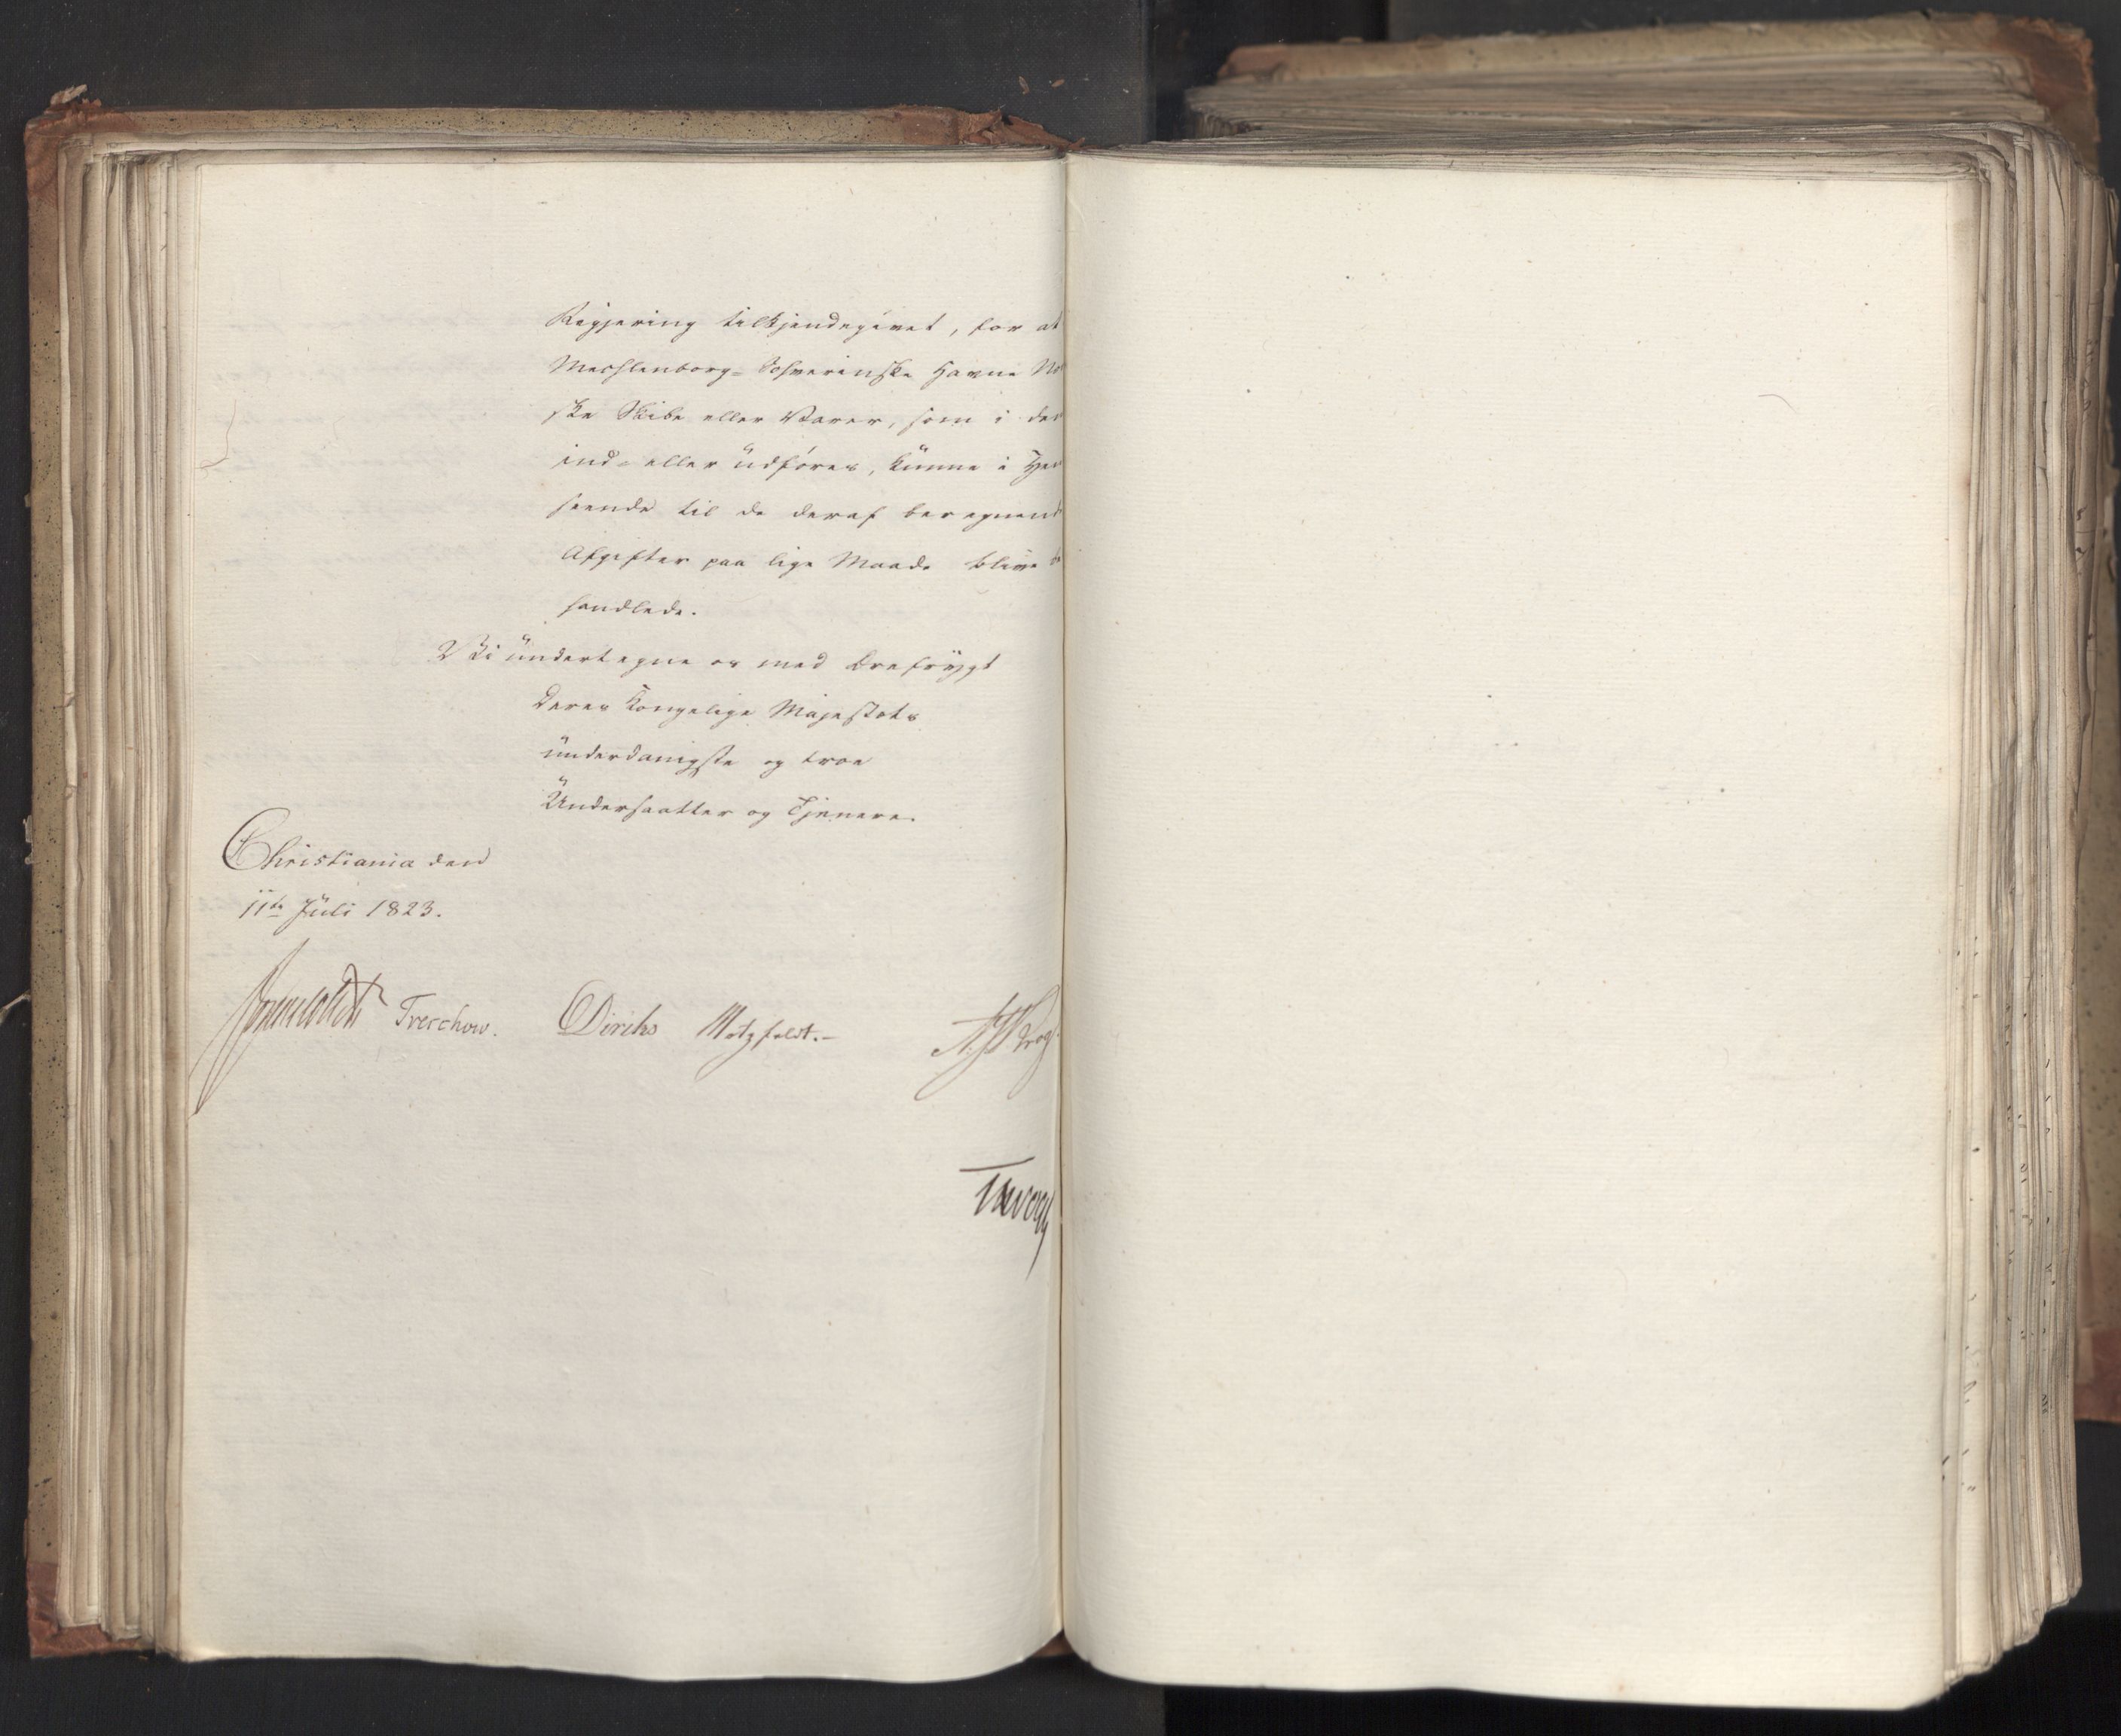 Regjering tilkjendegivet, for at
Mechlenborg-Schwerinske Havne No
ske Skibe eller Varer, som i de
ind- eller udføres, kunne i Hen
seende til de deraf beregnend
Afgifter paa lige Maade blive be
handlede.
Vi undertegne os med Ærefrygt
Deres Kongelige Majestæts
underdanigste og troe
Undersaatter og Tjenere.
Christiania den
11te Juli 1823.
Sommerhielm Treschow. Diriks Motzfeldt. Krog